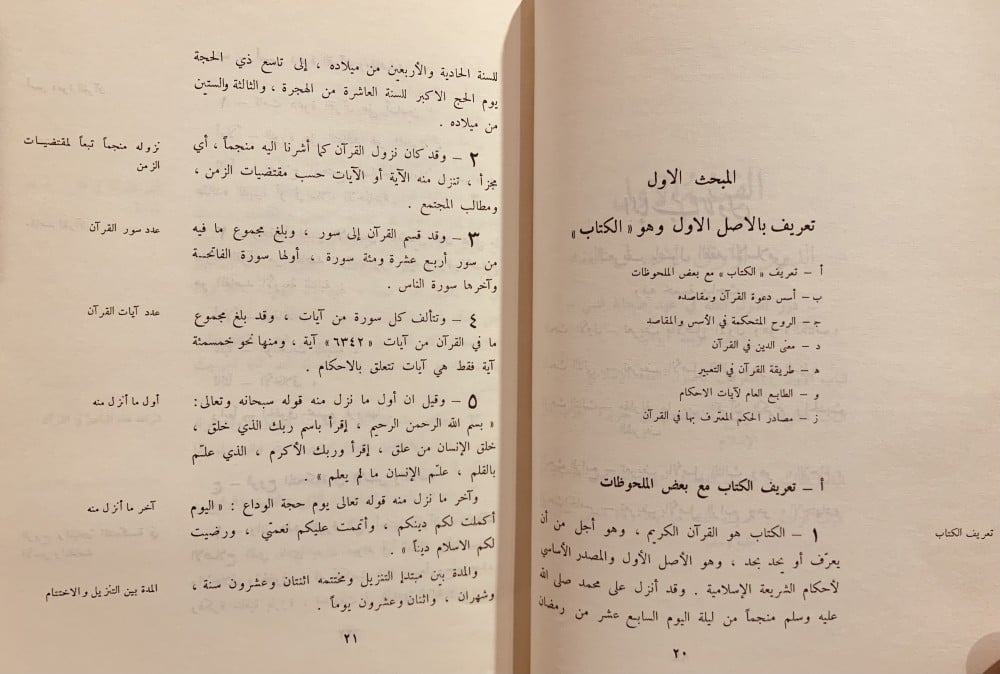 المبحث الاول
تعريف بالاصل الاول وهو «الكتاب»
أ – تعريف «الكتاب» مع بعض الملحوظات
ب – أسس دعوة القرآن ومقاصده
ج – الروح المتحكمة في الأسس والمقاصد
د – معنى الدين في القرآن
ه – طريقة القرآن في التعبير
و – الطابع العام لآيات الاحكام
ز – مصادر الحكم المعترف بها في القرآن
أ – تعريف الكتاب مع بعض الملحوظات
تعريف الكتاب
١ – الكتاب هو القرآن الكريم ، وهو أجل من أن
يعرّف أو يحد بحد ، وهو الأصل الأول والمصدر الأساسي
لأحكام الشريعة الإسلامية . وقد أنزل على محمد صلى الله
عليه وسلم منجماً من ليلة اليوم السابع عشر من رمضان
٢٠
للسنة الحادية والأربعين من ميلاده ، إلى تاسع ذي الحجة
يوم الحج الاكبر للسنة العاشرة من الهجرة ، والثالثة والستين
من ميلاده .
نزوله منجماً تبعاً لمقتضيات
الزمن
٢ – وقد كان نزول القرآن كما أشرنا اليه منجماً ، أي
مجزأ ، تنزل منه الآية أو الآيات حسب مقتضيات الزمن ،
ومطالب المجتمع .
عدد سور القرآن
٣ – وقد قسم القرآن إلى سور ، وبلغ مجموع ما فيه
من سور أربع عشرة ومئة سورة ، أولها سورة الفاتحة
وآخرها سورة الناس .
عدد آيات القرآن
٤ – وتتألف كل سورة من آيات ، وقد بلغ مجموع
ما في القرآن من آيات «٦٣٤٢» آية ، ومنها نحو خمسمئة
آية فقط هي آيات تتعلق بالاحكام .
أول ما أنزل منه
٥ – وقيل ان أول ما نزل منه قوله سبحانه وتعالى:
« بسم الله الرحمن الرحيم ، إقرأ باسم ربك الذي خلق ،
خلق الإنسان من علق ، إقرأ وربك الأكرم ، الذي علّم
بالقلم ، علّم الإنسان ما لم يعلم » .
آخر ما أنزل منه
وآخر ما نزل منه قوله تعالى يوم حجة الوداع : « اليوم
أكملت لكم دينكم ، وأتممت عليكم نعمتي ، ورضيت
لكم الاسلام ديناً » .
المدة بين التنزيل والاختتام
والمدة بين مبتدإ التنزيل ومختتمه اثنتان وعشرون سنة ،
وشهران ، واثنان وعشرون يوماً .
٢١